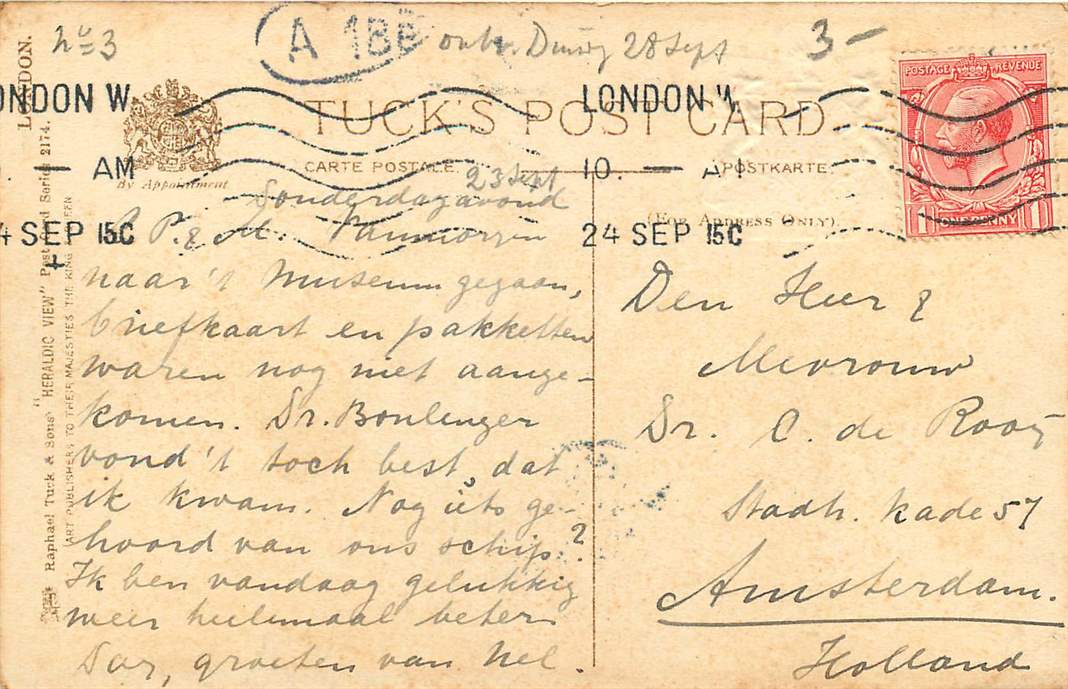 No 3
A 18E
Dinsdag 28 Sept
3 -
LONDON.
LONDON W
LONDON W
POSTAGE REVENUE
TUCK'S POST CARD
AM
10. — AM
CARTE POSTALE.
POSTKARTE.
By Appointment
23 Sept
Donderdagavond
(FOR ADDRESS ONLY)
1 ONE PENNY 1
4 SEP 15C
24 SEP 15C
P. & M. Vanmorgen
naar 't Museum gegaan,
briefkaart en pakketten
waren nog niet aange-
komen. Dr. Boulenger
vond 't toch best, dat
ik kwam. Nog iets ge-
hoord van ons schip?
Ik ben vandaag gelukkig
weer heelemaal beter
Dag, groeten van Nel.
Den Heer &
Mevrouw
Dr. C. de Rooy
Stadh. kade 57
Amsterdam.
Holland
Raphael Tuck & Sons' "HERALDIC VIEW" Postcard Series 2174.
(ART PUBLISHERS TO THEIR MAJESTIES THE KING